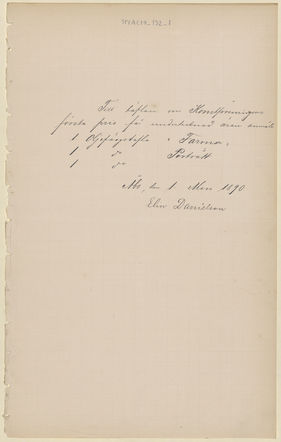 Till täflan om Konstföreningens
första pris får undertecknad anmäla
1 Oljefärgstafla "Tarma"
1 do Porträtt
1 do
Åbo, den 1 Mars 1890
Elin Danielson